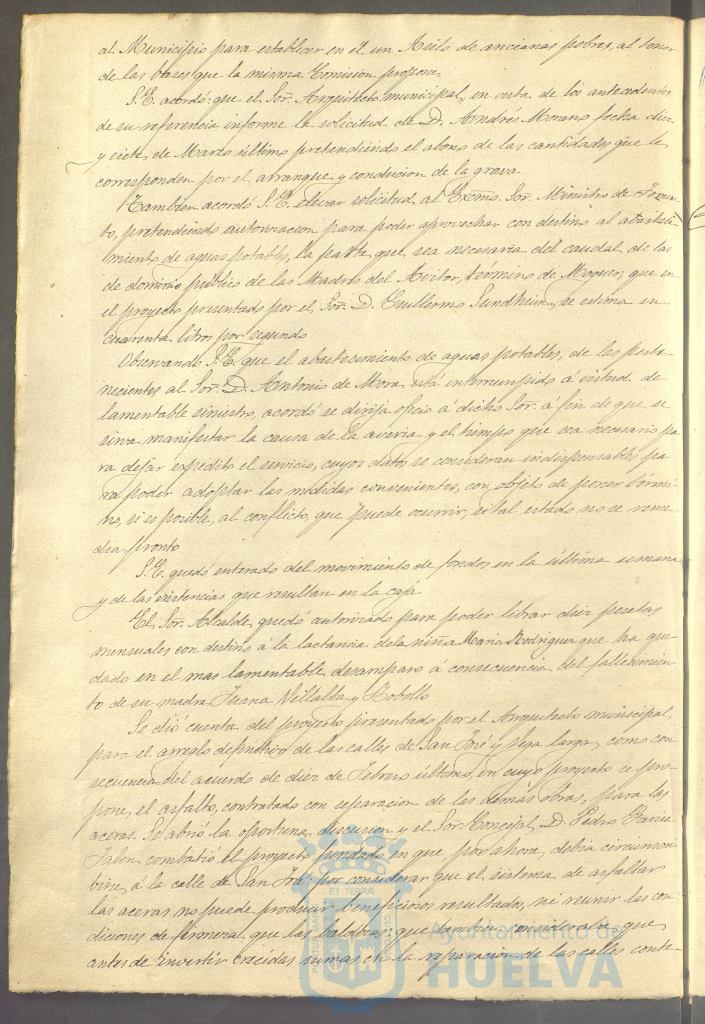 al Municipio para establecer en él un Asilo de ancianas pobres, al tenor
de las bases que la misma Comision propone.
S.E. acordó: que el Sor. Arquitecto municipal, en vista de los antecedentes
de su referencia informe la solicitud de D. Andrés Morano fecha diez
y siete de Marzo último pretendiendo el abono de las cantidades que le
corresponden por el arranque y conduccion de la grava
Tambien acordó S.E. elevar solicitud al Excmo. Sor. Ministro de Fomen-
to, pretendiendo autorizacion para poder aprovechar con destino al abasteci-
miento de aguas potables, la parte que sea necesaria del caudal de las
de dominio público de las Madres del Avitor, término de Moguer, que en
el proyecto presentado por el Sor. D. Guillermo Sundheim, se estima en
cuarenta litros por segundo
Observando S.E. que el abastecimiento de aguas potables, de las perte-
necientes al Sor. D. Antonio de Mora está interrumpido á virtud de
lamentable siniestro, acordó se dirija oficio á dicho Sor. á fin de que se
sirva manifestar la causa de la averia y el tiempo que sea necesario pa
ra dejar expedito el servicio, cuyos datos se consideran indispensables pa
ra poder adoptar las medidas convenientes, con objeto de poner térmi
no, si es posible, al conflicto, que puede ocurrir, si tal estado no se reme
dia pronto
S.E. quedó enterado del movimiento de fondos en la última semana
y de las existencias que resultan en la caja
El Sor. Alcalde, quedó autorizado para poder librar diez pesetas
mensuales con destino á la lactancia de la niña Maria Rodriguez que ha que-
dado en el mas lamentable desamparo á consecuencia del fallecimien
to de su madre Juana Villalba y Rebollo
Se dió cuenta del proyecto presentado por el Arquitecto municipal,
para el arreglo definitivo de las calles de San José y Vega larga, como con
secuencia del acuerdo de diez de Febrero último, en cuyo proyecto se pro-
pone, el asfalto, contratado con separacion de las demás obras, para las
aceras. Se abrió la oportuna discusion y el Sor. Concejal, D. Pedro Garcia
Jalon combatió el proyecto fundado en que, por ahora, debia circunscri
birse, á la calle de San José; por considerar que el sistema de asfaltar
las aceras no puede producir beneficiosos resultados, ni reunir las con
diciones de firmeza que las baldosas: que tambien consideraba que
antes de invertir crecidas sumas en la reparacion de las calles conte-
PORTUS MARIS ET TERRAE CUSTODIA
Ayuntamiento de
HUELVA